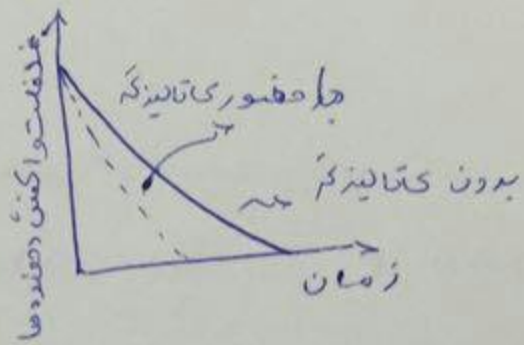 غلظت واکنش دهنده ها
با حضور کاتالیزگر
بدون کاتالیزگر
زمان